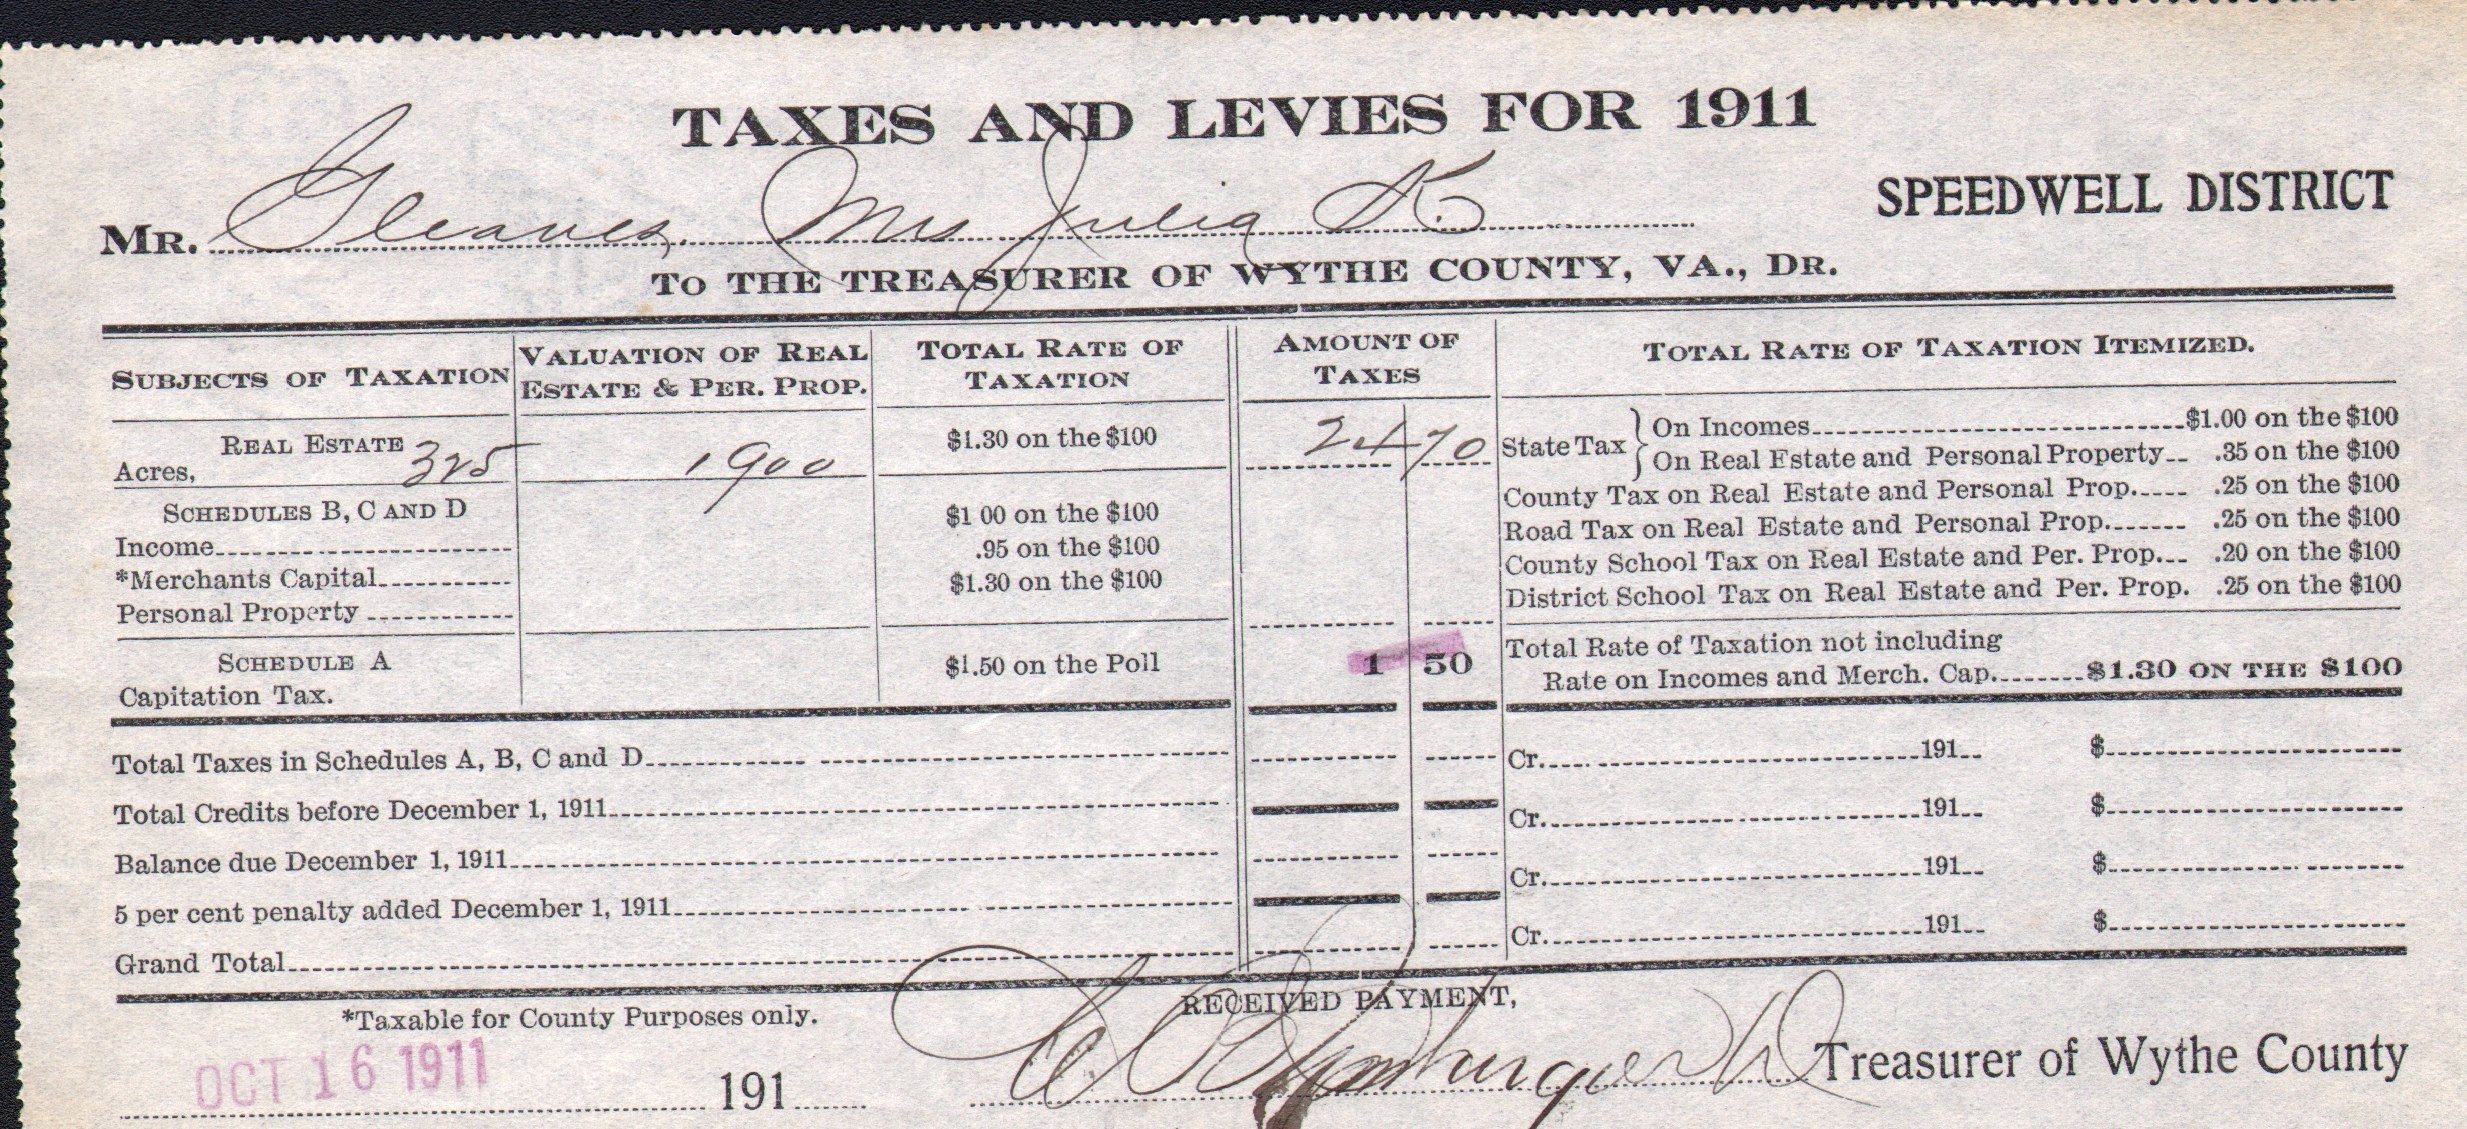 TAXES AND LEVIES FOR 1911
SPEEDWELL DISTRICT
MR. Gleaves, Mrs Julia K.
TO THE TREASURER OF WYTHE COUNTY, VA., DR.
SUBJECTS OF TAXATION
VALUATION OF REAL ESTATE & PER. PROP.
TOTAL RATE OF TAXATION
AMOUNT OF TAXES
TOTAL RATE OF TAXATION ITEMIZED.
REAL ESTATE
Acres, 325 1900 $1.30 on the $100 24 70
SCHEDULES B, C AND D
Income $1 00 on the $100
*Merchants Capital .95 on the $100
Personal Property $1.30 on the $100
SCHEDULE A
Capitation Tax. $1.50 on the Poll 1 50
State Tax } On Incomes $1.00 on the $100
On Real Estate and Personal Property .35 on the $100
County Tax on Real Estate and Personal Prop. .25 on the $100
Road Tax on Real Estate and Personal Prop. .25 on the $100
County School Tax on Real Estate and Per. Prop. .20 on the $100
District School Tax on Real Estate and Per. Prop. .25 on the $100
Total Rate of Taxation not including
Rate on Incomes and Merch. Cap. $1.30 ON THE $100
Total Taxes in Schedules A, B, C and D
Total Credits before December 1, 1911
Balance due December 1, 1911
5 per cent penalty added December 1, 1911
Grand Total
Cr. 191 $
Cr. 191 $
Cr. 191 $
Cr. 191 $
*Taxable for County Purposes only.
RECEIVED PAYMENT,
OCT 16 1911
191
Treasurer of Wythe County